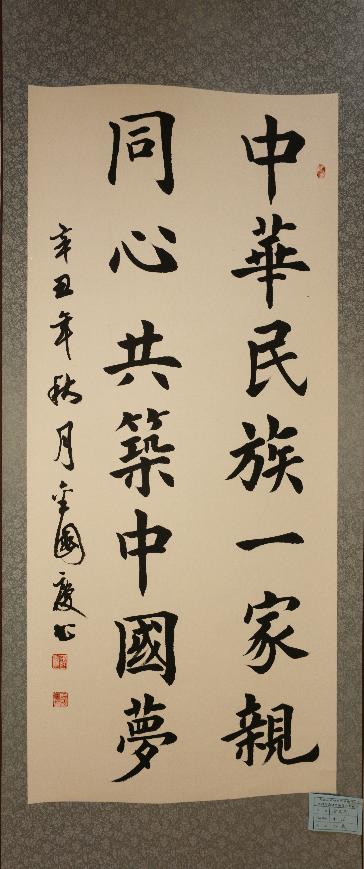 中華民族一家親
同心共築中國夢
辛丑年秋月金國慶书